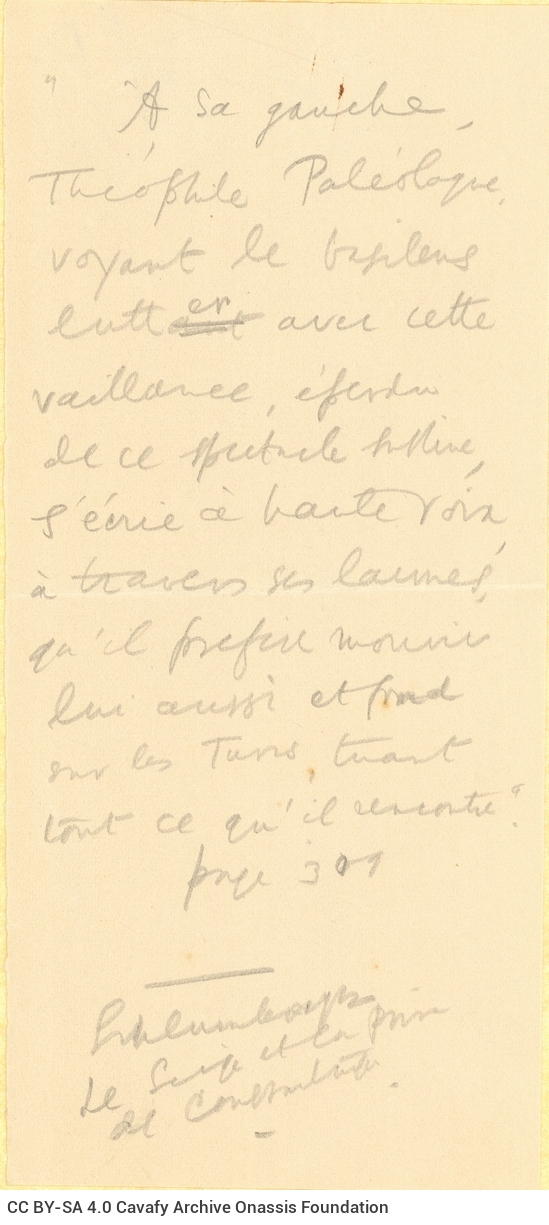 " "A sa gauche,
Théophile Paléologue,
voyant le basileus
lutter avec cette
vaillance, éperdu
de ce spectacle sublime,
s'écrie à haute voix,
à travers ses larmes,
qu'il préfère mourir
lui aussi et fond
sur les Turcs tuant
tout ce qu'il rencontre".
page 309
Schlumberger
Le Siège et la prise
de Constantinople.
CC BY-SA 4.0 Cavafy Archive Onassis Foundation